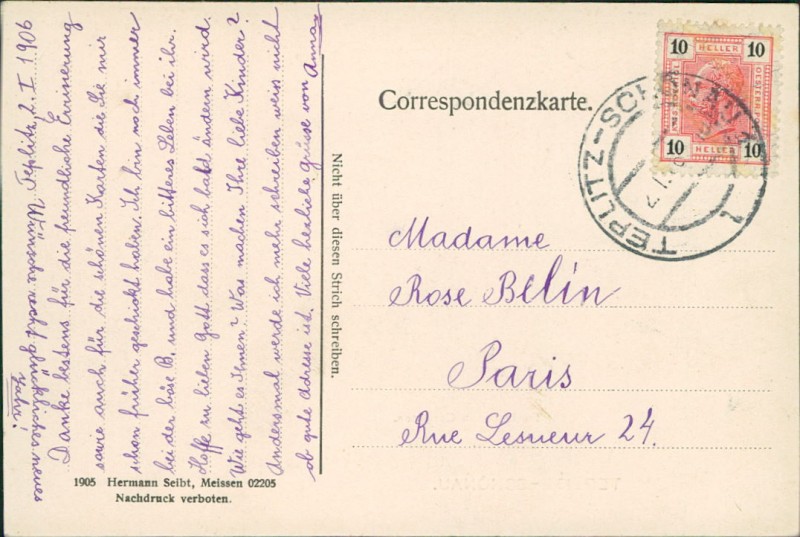 Teplitz, 2. I 1906
Danke bestens für die freundliche Erinnerung
sowie auch für die schönen Karten die Sie mir
schon früher geschickt haben. Ich bin noch immer
bei der böse B. und habe ein bitteres Leben bei ihr.
Hoffe zu lieben Gott dass es sich bald ändern wird.
Wie geht es Ihnen? Was machen Ihre liebe Kinder?
Andersmal werde ich mehr schreiben weiss nicht
ob gute Adresse ist. Viele herzliche grüsse von Anna
Wünsche recht glückliches neues
Jahr!
1905 Hermann Seibt, Meissen 02205
Nachdruck verboten.
Nicht über diesen Strich schreiben.
Correspondenzkarte.
10 HELLER 10
10 HELLER 10
TEPLITZ-SCHÖNAU 1
Madame
Rose Belin
Paris
Rue Lesueur 24.